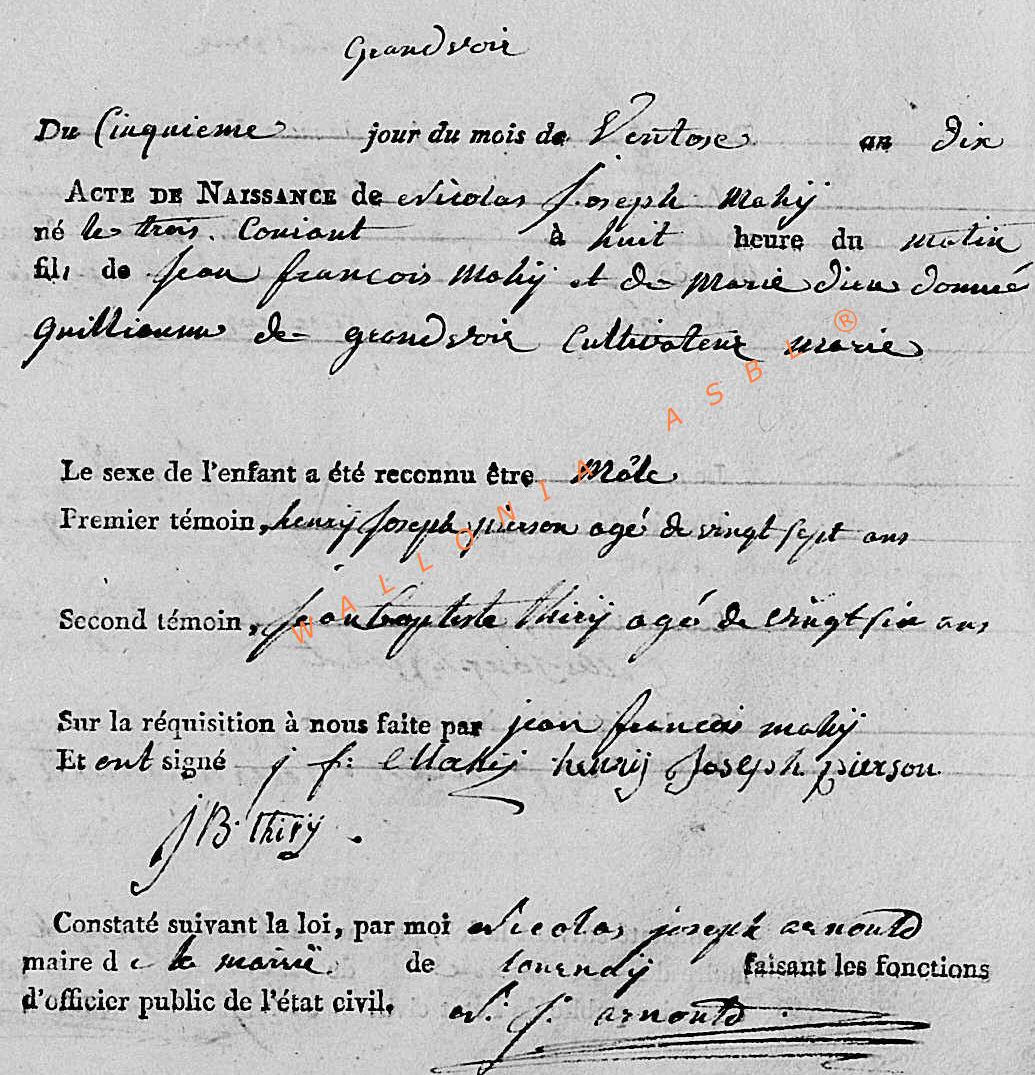 Grandvoir
Du Cinquieme jour du mois de Ventose an dix
ACTE DE NAISSANCE de Nicolas Joseph Mahij
né le trois. Courant à huit heure du matin
fils de jean françois Mahij et de Marie dieu donné
guilliaume de grandvoir Cultivateur marié
Le sexe de l'enfant a été reconnu être Mâle
Premier témoin, henrij Joseph pierson agé de vingt sept ans
Second témoin, jean baptiste thirij agé de vingt six ans
Sur la réquisition à nous faite par jean françois mahij
Et ont signé j f: Mahij henrij Joseph pierson
J B. thirij.
Constaté suivant la loi, par moi Nicolas joseph arnould
maire de la mairië de tournaij faisant les fonctions
d'officier public de l'état civil. N. j. arnould
WALLONIA ASBL ®